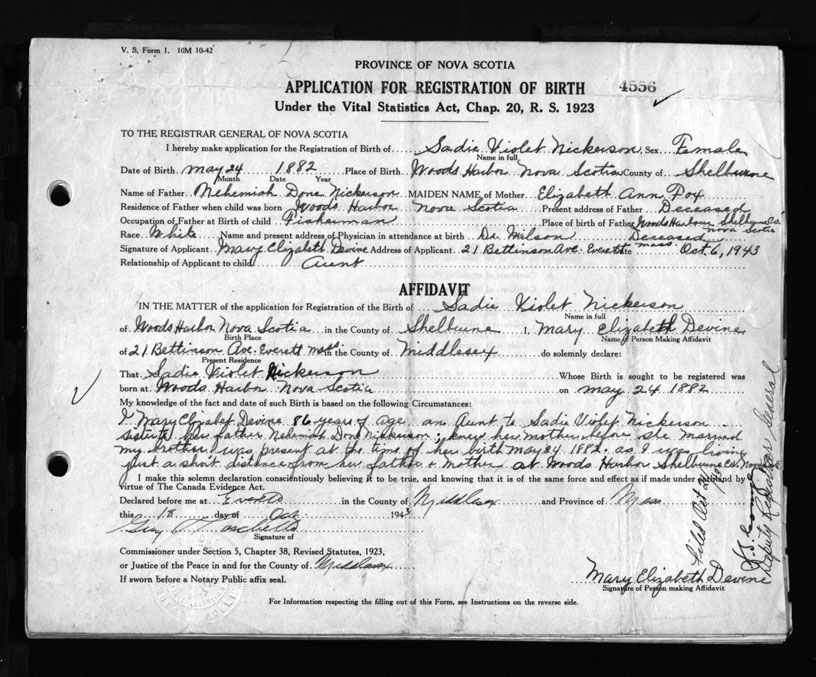 V. S. Form 1. 10M 10-42
PROVINCE OF NOVA SCOTIA
APPLICATION FOR REGISTRATION OF BIRTH 4556
Under the Vital Statistics Act, Chap. 20, R. S. 1923
TO THE REGISTRAR GENERAL OF NOVA SCOTIA
I hereby make application for the Registration of Birth of Sadie Violet Nickerson Sex Female
Name in full
Date of Birth May 24 1882 Place of Birth Woods Harbor Nova Scotia County of Shelburne
Month Date Year
Name of Father Nehemiah Done Nickerson MAIDEN NAME of Mother Elizabeth Ann Fox
Residence of Father when child was born Woods Harbor Nova Scotia Present address of Father Deceased
Occupation of Father at Birth of child Fisherman Place of birth of Father Woods Harbour Shelburne Co. Nova Scotia
Race White Name and present address of Physician in attendance at birth Dr. Wilson Deceased
Signature of Applicant Mary Elizabeth Devine Address of Applicant 21 Bettinson Ave. Everett Mass Date Oct. 6, 1943
Relationship of Applicant to child Aunt
AFFIDAVIT
IN THE MATTER of the application for Registration of the Birth of Sadie Violet Nickerson
Name in full
of Woods Harbor Nova Scotia in the County of Shelburne I, Mary Elizabeth Devine
Birth Place Name of Person Making Affidavit
of 21 Bettinson Ave. Everett Mass in the County of Middlesex do solemnly declare:
Present Residence
That Sadie Violet Nickerson Whose Birth is sought to be registered was
born at Woods Harbor Nova Scotia on May 24 1882
My knowledge of the fact and date of such Birth is based on the following Circumstances:
I Mary Elizabet Devine 86 years of age an Aunt to Sadie Violet Nickerson
sister to her father Nehemiah Done Nickerson; knew her mother before she married
my brother, was present at the time of her birth May 24 1882. as I was living
just a short distance from her father & mother at Woods Harbor Shelburne Co. Nova Scotia
I make this solemn declaration conscientiously believing it to be true, and knowing that it is of the same force and effect as if made under oath and by
virtue of The Canada Evidence Act.
Declared before me at Everett in the County of Middlesex and Province of Mass
this 18 day of Oct 1943
Guy
Signature of
Commissioner under Section 5, Chapter 38, Revised Statutes, 1923,
or Justice of the Peace in and for the County of Middlesex
If sworn before a Notary Public affix seal.
Mary Elizabeth Devine
Signature of Person making Affidavit
For Information respecting the filling out of this Form, see Instructions on the reverse side.
Filed Oct 21
Deputy Registrar General